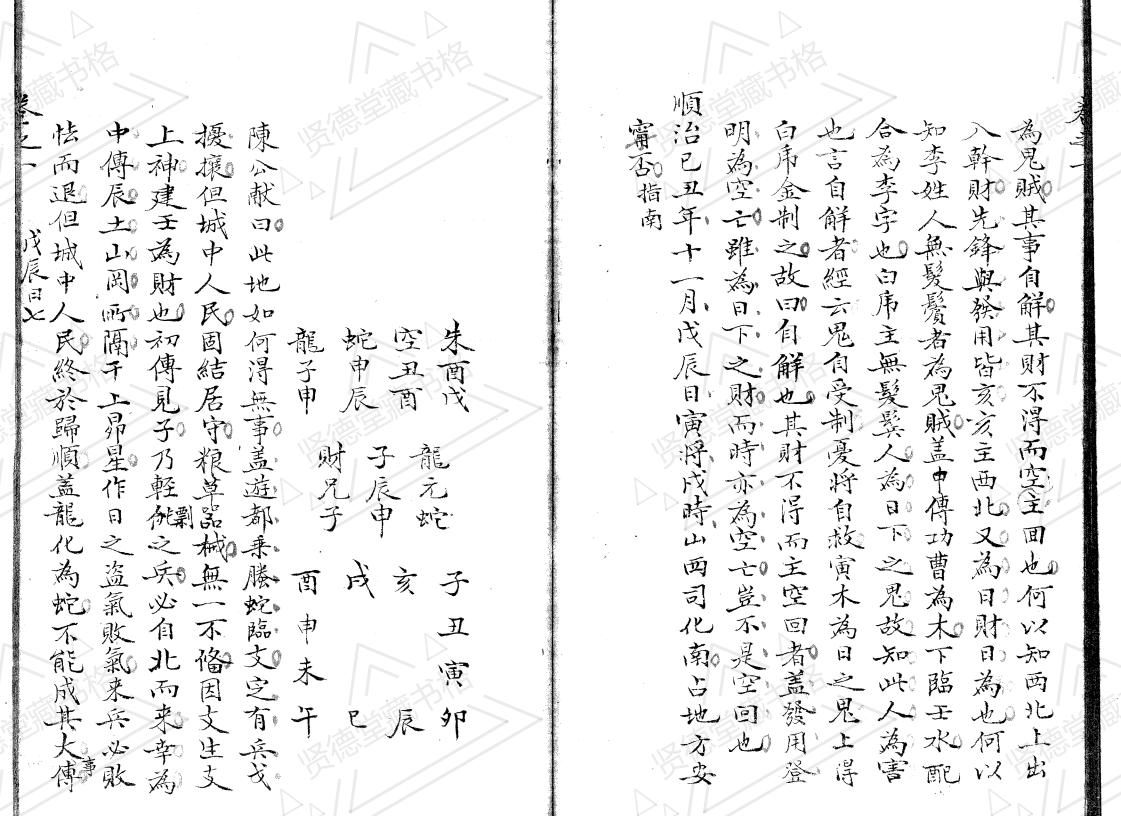 卷之一
為鬼賊其事自解其財不得而空主回也何以知西北上出
入幹財先鋒與發用皆亥亥主西北又為日財日為也何以
知李姓人無髮鬢者為鬼賊蓋中傳功曹為木下臨壬水配
合為李字也白虎主無髮鬢人為日下之鬼故知此人為害
也言自解者經云鬼自受制憂將自救寅木為日之鬼上得
白虎金制之故曰自解也其財不得而主空回者蓋發用登
明為空亡雖為日下之財而時亦為空亡豈不是空回也
順治己丑年十一月戊辰日寅將戌時山西司化南占地方安
甯否 指南
朱酉戌 龍元蛇 子丑寅卯
空丑酉 子辰申 亥 辰
蛇申辰 財兄子 戌 巳
龍子申 酉申未午
陳公献曰此地如何得無事蓋遊都乗螣蛇臨支定有兵戈
擾攘但城中人民固結居守粮草器械無一不備因支生支
上神建壬為財也初傳見子乃輕剽之兵必自北而来幸為
中傳辰土山岡所隔干上昴星作日之盜氣敗氣来兵必敗
怯而退但城中人民終於歸順蓋龍化為蛇不能成其大事傳
卷之一 戊辰日七